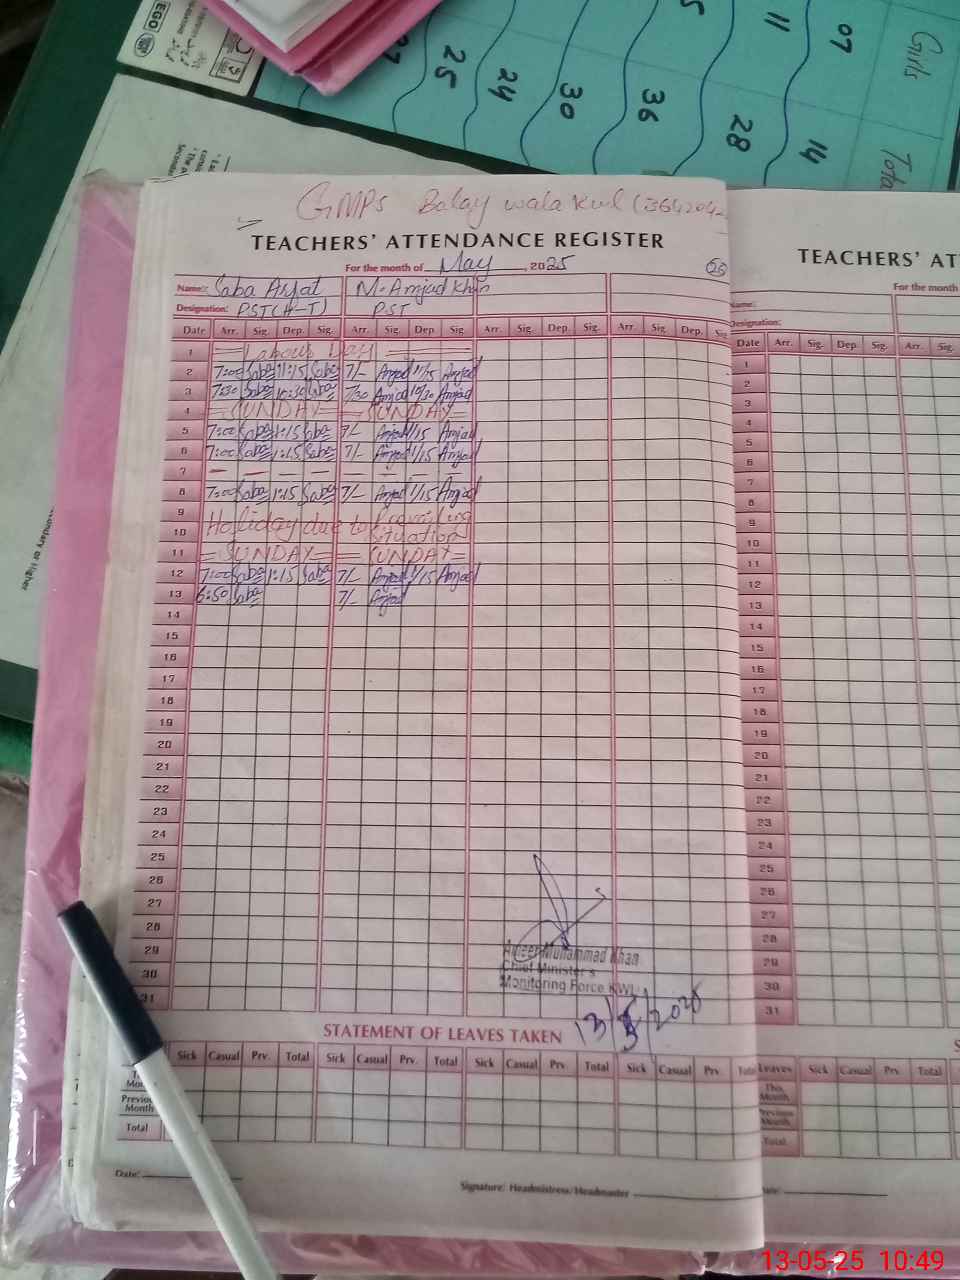 EGO
25
24
30
36
28
11
07
14
Girls
GMPS Balay wala Kul (3642042
TEACHERS' ATTENDANCE REGISTER
For the month of May, 2025
Name: Saba Asfat M. Amjad Khan
Designation: PST(H-T) PST
Date Arr. Sig. Dep. Sig. Arr. Sig. Dep. Sig. Arr. Sig. Dep. Sig. Arr. Sig. Dep. Sig.
1 Labour Day
2 7:00 Saba 1:15 Saba 7/- Amjad 1/15 Amjad
3 7:30 Saba 10:30 Saba 7/30 Amjad 10/30 Amjad
4 = SUNDAY = = SUNDAY =
5 7:00 Saba 1:15 Saba 7/- Amjad 1/15 Amjad
6 7:00 Saba 1:15 Saba 7/- Amjad 1/15 Amjad
7 — — — — — —
8 7:00 Saba 1:15 Saba 7/- Amjad 1/15 Amjad
9 Holiday due to Prevailing
10 situation
11 = SUNDAY = = SUNDAY =
12 7:00 Saba 1:15 Saba 7/- Amjad 1/15 Amjad
13 6:50 Saba 7/- Amjad
14
15
16
17
18
19
20
21
22
23
24
25
26
27
28
29
30
31
Ameer Muhammad Khan
Chief Minister's
Monitoring Force KWL
13/5/2025
STATEMENT OF LEAVES TAKEN
Sick Casual Prv. Total Sick Casual Prv. Total Sick Casual Prv. Total Sick Casual Prv. Total
Previous
Month
Total
Date:
Signature: Headmistress/Headmaster
TEACHERS' AT
For the month
Name:
Designation:
Date Arr. Sig. Dep. Sig. Arr. Sig.
1
2
3
4
5
6
7
8
9
10
11
12
13
14
15
16
17
18
19
20
21
22
23
24
25
26
27
28
29
30
31
Leaves Sick Casual Prv. Total
This Month
Previous Month
Total
13-05-25 10:49